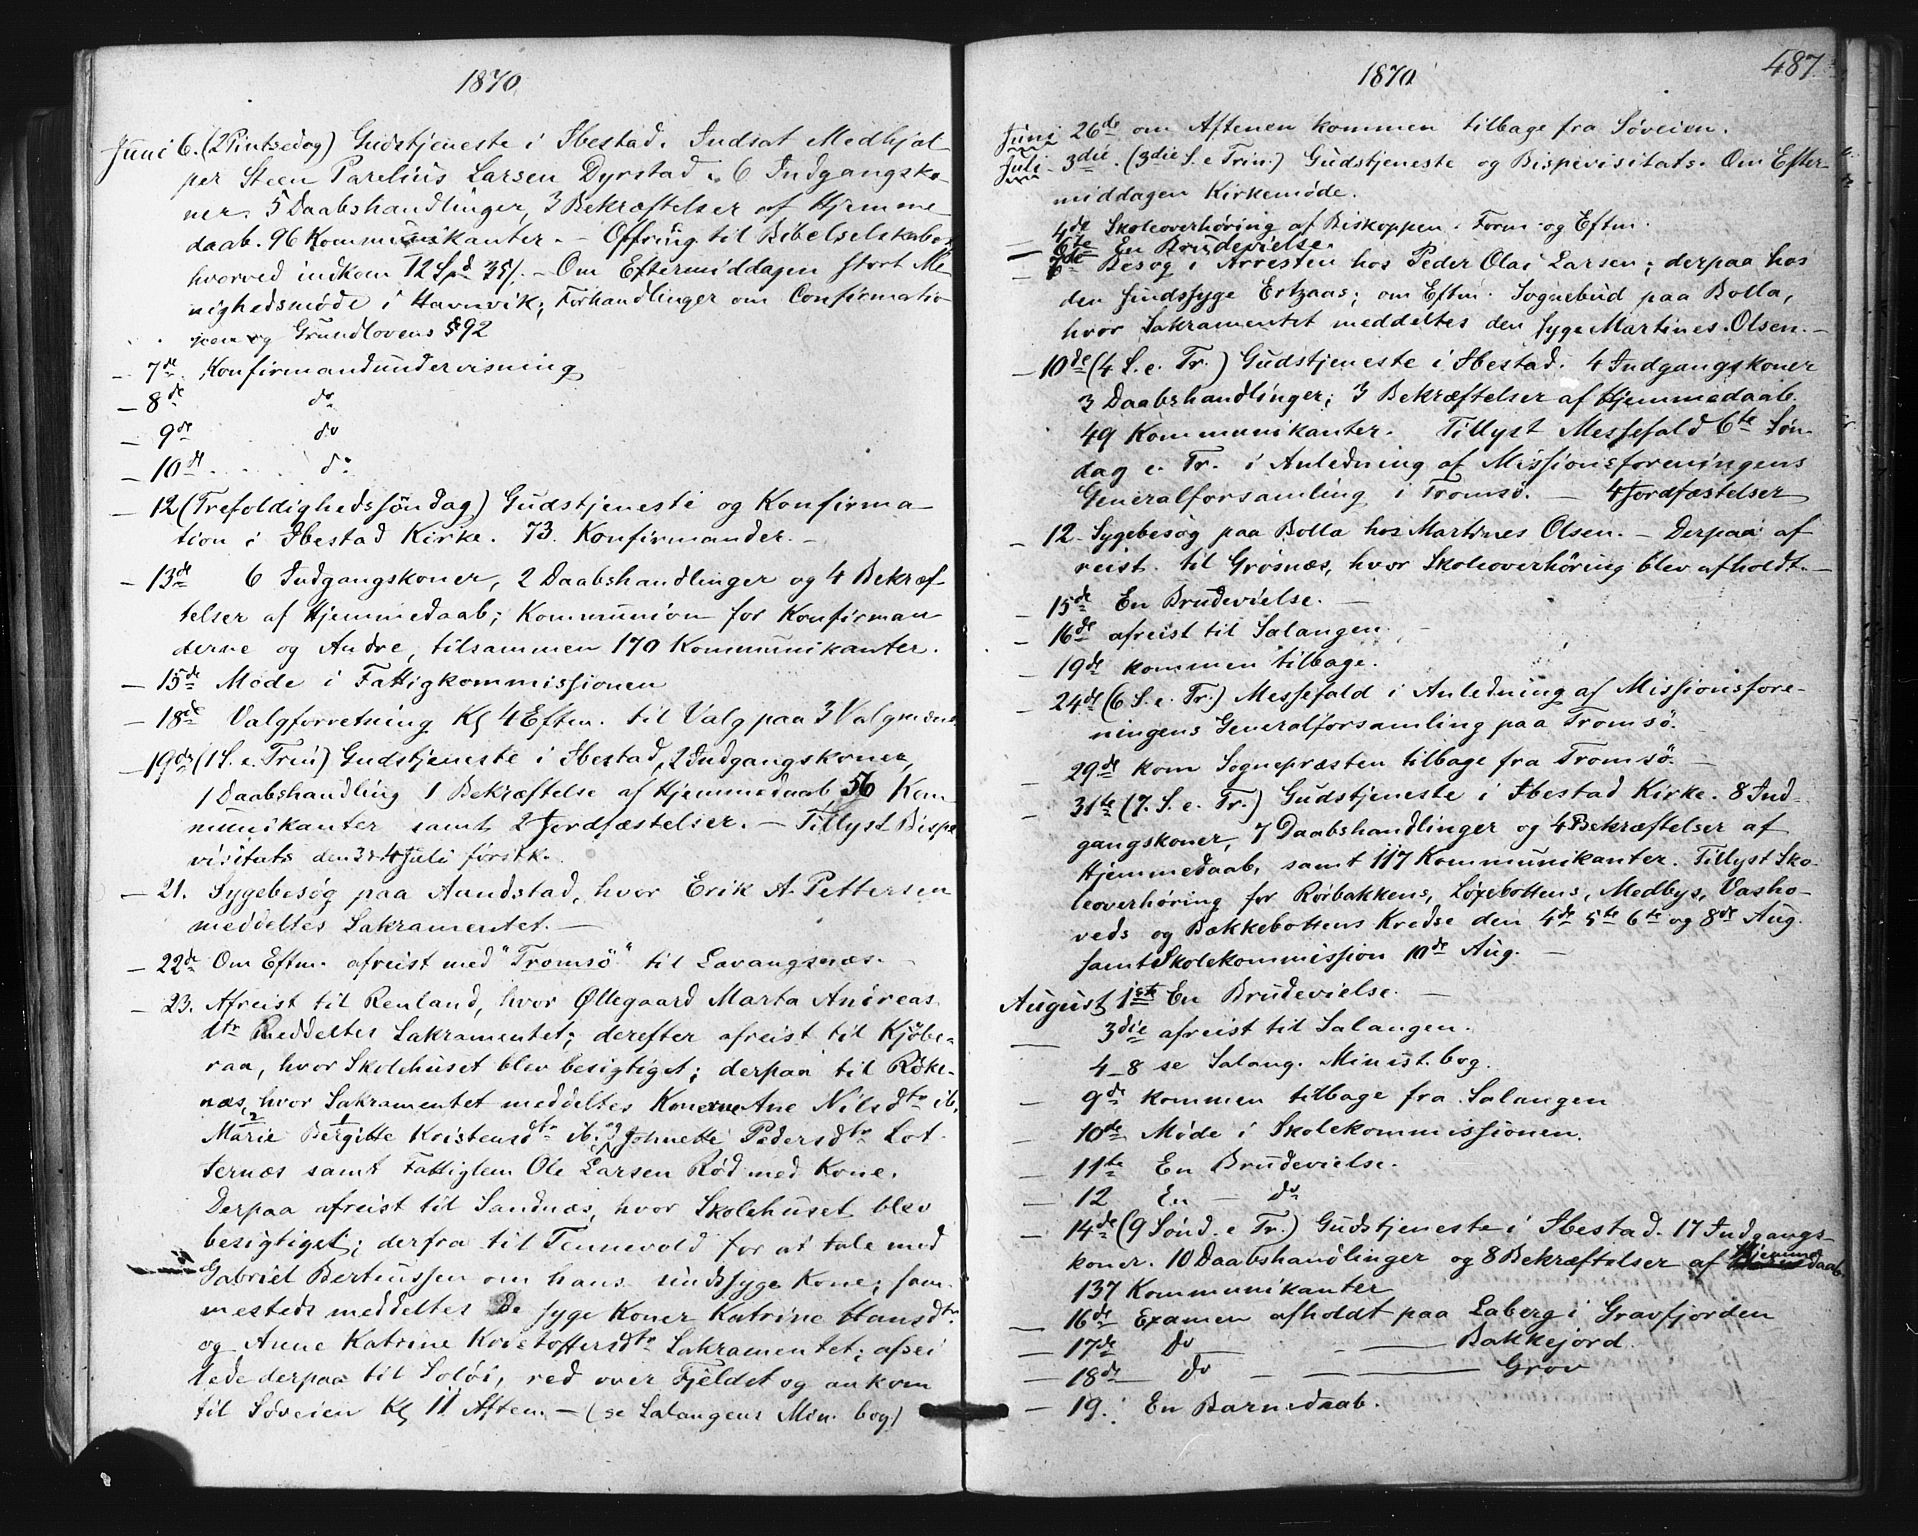 1870
Juni 6. (2 Pintsedag) Gudstjeneste i Ibestad. Indsat Medhjæl-
per Steen Parelius Larsen Dyrstad. 6 Indgangsko-
ner. 5 Daabshandlinger, 3 Bekræftelser af Hjemme
daab. 96 Kommunikanter. - Offring til Bibelselskabet
hvorved indkom 12 Spd 35 ß. - Om Eftermiddagen stort Me-
nighedsmøde i Havnvik; Forhandlinger om Confirmatio-
nen og Grundlovens § 92
- 7de Konfirmandundervisning
- 8de do
- 9de do
- 10de do
- 12 (Trefoldighedssöndag) Gudstjeneste og Konfirma-
tion i Ibestad Kirke. 73 Konfirmander. -
- 13de 6 Indgangskoner, 2 Daabshandlinger og 4 Bekræf-
telser af Hjemmedaab; Kommunion for Konfirman-
derne og Andre, tilsammen 170 Kommunikanter.
- 15de Møde i Fattigkommissionen
- 18de Valgforretning Kl 4 Eftm. til Valg paa 3 Valgmænd
- 19de (1 S. e. Trin) Gudstjeneste i Ibestad, 2 Indgangskoner,
1 Daabshandling 1 Bekræftelse af Hjemmedaab, 56 Kom-
munikanter samt 2 Jordfæstelser. - Tillyst Bispe
visitats den 3 & 4 Juli førstk.
- 21. Sygebesøg paa Aandstad, hvor Erik A. Pettersen
meddeltes Sakramentet. -
- 22de Om Eftm. afreist med "Tromsö" til Lavangsnæs. -
- 23. Afreist til Renland, hvor Øllegaard Marta Andreas
dtr meddeltes Sakramentet; derefter afreist til Kjöbe-
raa, hvor Skolehuset blev besigtiget; derpaa til Røke-
næs, hvor Sakramentet meddeltes Konerne Ane Nilsdtr ib.
Marie 2 Bergitte 1 Kristensdtr ib. og Johnette Pedersdtr Lot-
ternæs samt Fattiglem Ole Larsen Rød med Kone.
Derpaa afreist til Sandnæs, hvor Skolehuset blev
besigtiget; derfra til Tennevold for at tale med
Gabriel Berteussen om hans sindssyge Kone; sam-
mesteds meddeltes de syge Koner Katrine Hansdtr.
og Anne Katrine Kristoffersdtr Sakramentet; afsei
lede derpaa til Soløi, red over Fjeldet og ankom
til Søveien Kl 11 Aften. - (se Salangens Min. bog)
1870
487
Juni 26de om Aftenen kommen tilbage fra Søveien.
Juli - 3die. (3die S. e Trin.) Gudstjeneste og Bispevisitats. Om Efter-
middagen Kirkemøde.
4de Skoleoverhøring af Biskoppen. Form- og Eftm.
- 6te En Brudevielse.
- 7de Besøg i Arresten hos Peder Olai Larsen; derpaa hos
den sindssyge Ertzaas; om Eftm. Sognebud paa Bolla,
hvor Sakramentet meddeltes den syge Martines Olsen. -
- 10de (4 S. e. Tr.) Gudstjeneste i Ibestad. 4 Indgangskoner
3 Daabshandlinger; 3 Bekræftelser af Hjemmedaab.
49 Kommunikanter. Tillyst Messefald 6te Søn-
dag e. Tr. i Anledning af Missionsforeningens
Generalforsamling i Tromsö. - 4 Jordfæstelser
- 12. Sygebesøg paa Bolla hos Martines Olsen. - Derpaa af
reist til Grøsnæs, hvor Skoleoverhøring blev afholdt. -
- 15de En Brudevielse. -
- 16de afreist til Salangen. -
- 19de kommen tilbage.
- 24de (6 S. e. Tr.) Messefald i Anledning af Missionsfore-
ningens Generalforsamling paa Tromsö.
- 29de kom Sognepræsten tilbage fra Tromsö. -
- 31te (7. S. e. Tr.) Gudstjeneste i Ibestad Kirke. 8 Ind-
gangskoner, 7 Daabshandlinger og 4 Bekræftelser af
Hjemmedaab, samt 117 Kommunikanter. Tillyst Sko-
leoverhøring for Rørbakkens, Løxebottens, Medbys, Vasho-
veds og Bækkebottens Kredse den 4de 5te 6te og 8de Aug.
samt Skolekommission 10de Aug. -
August 1ste En Brudevielse. -
- 3die afreist til Salangen.
4-8 se Salang. Minist. bog.
- 9de kommen tilbage fra Salangen
- 10de Møde i Skolekommissionen.
- 11te En Brudevielse.
- 12 En - do
- 14de (9 Sønd. e Tr.) Gudstjeneste i Ibestad. 17 Indgangs-
koner. 10 Daabshandlinger og 8 Bekræftelser af Hjemmedaab
137 Kommunikanter
- 16de Examen afholdt paa Laberg i Gravfjorden
- 17de Do - Bakkejord.
- 18de Do - Grov
- 19. En Barnedaab.